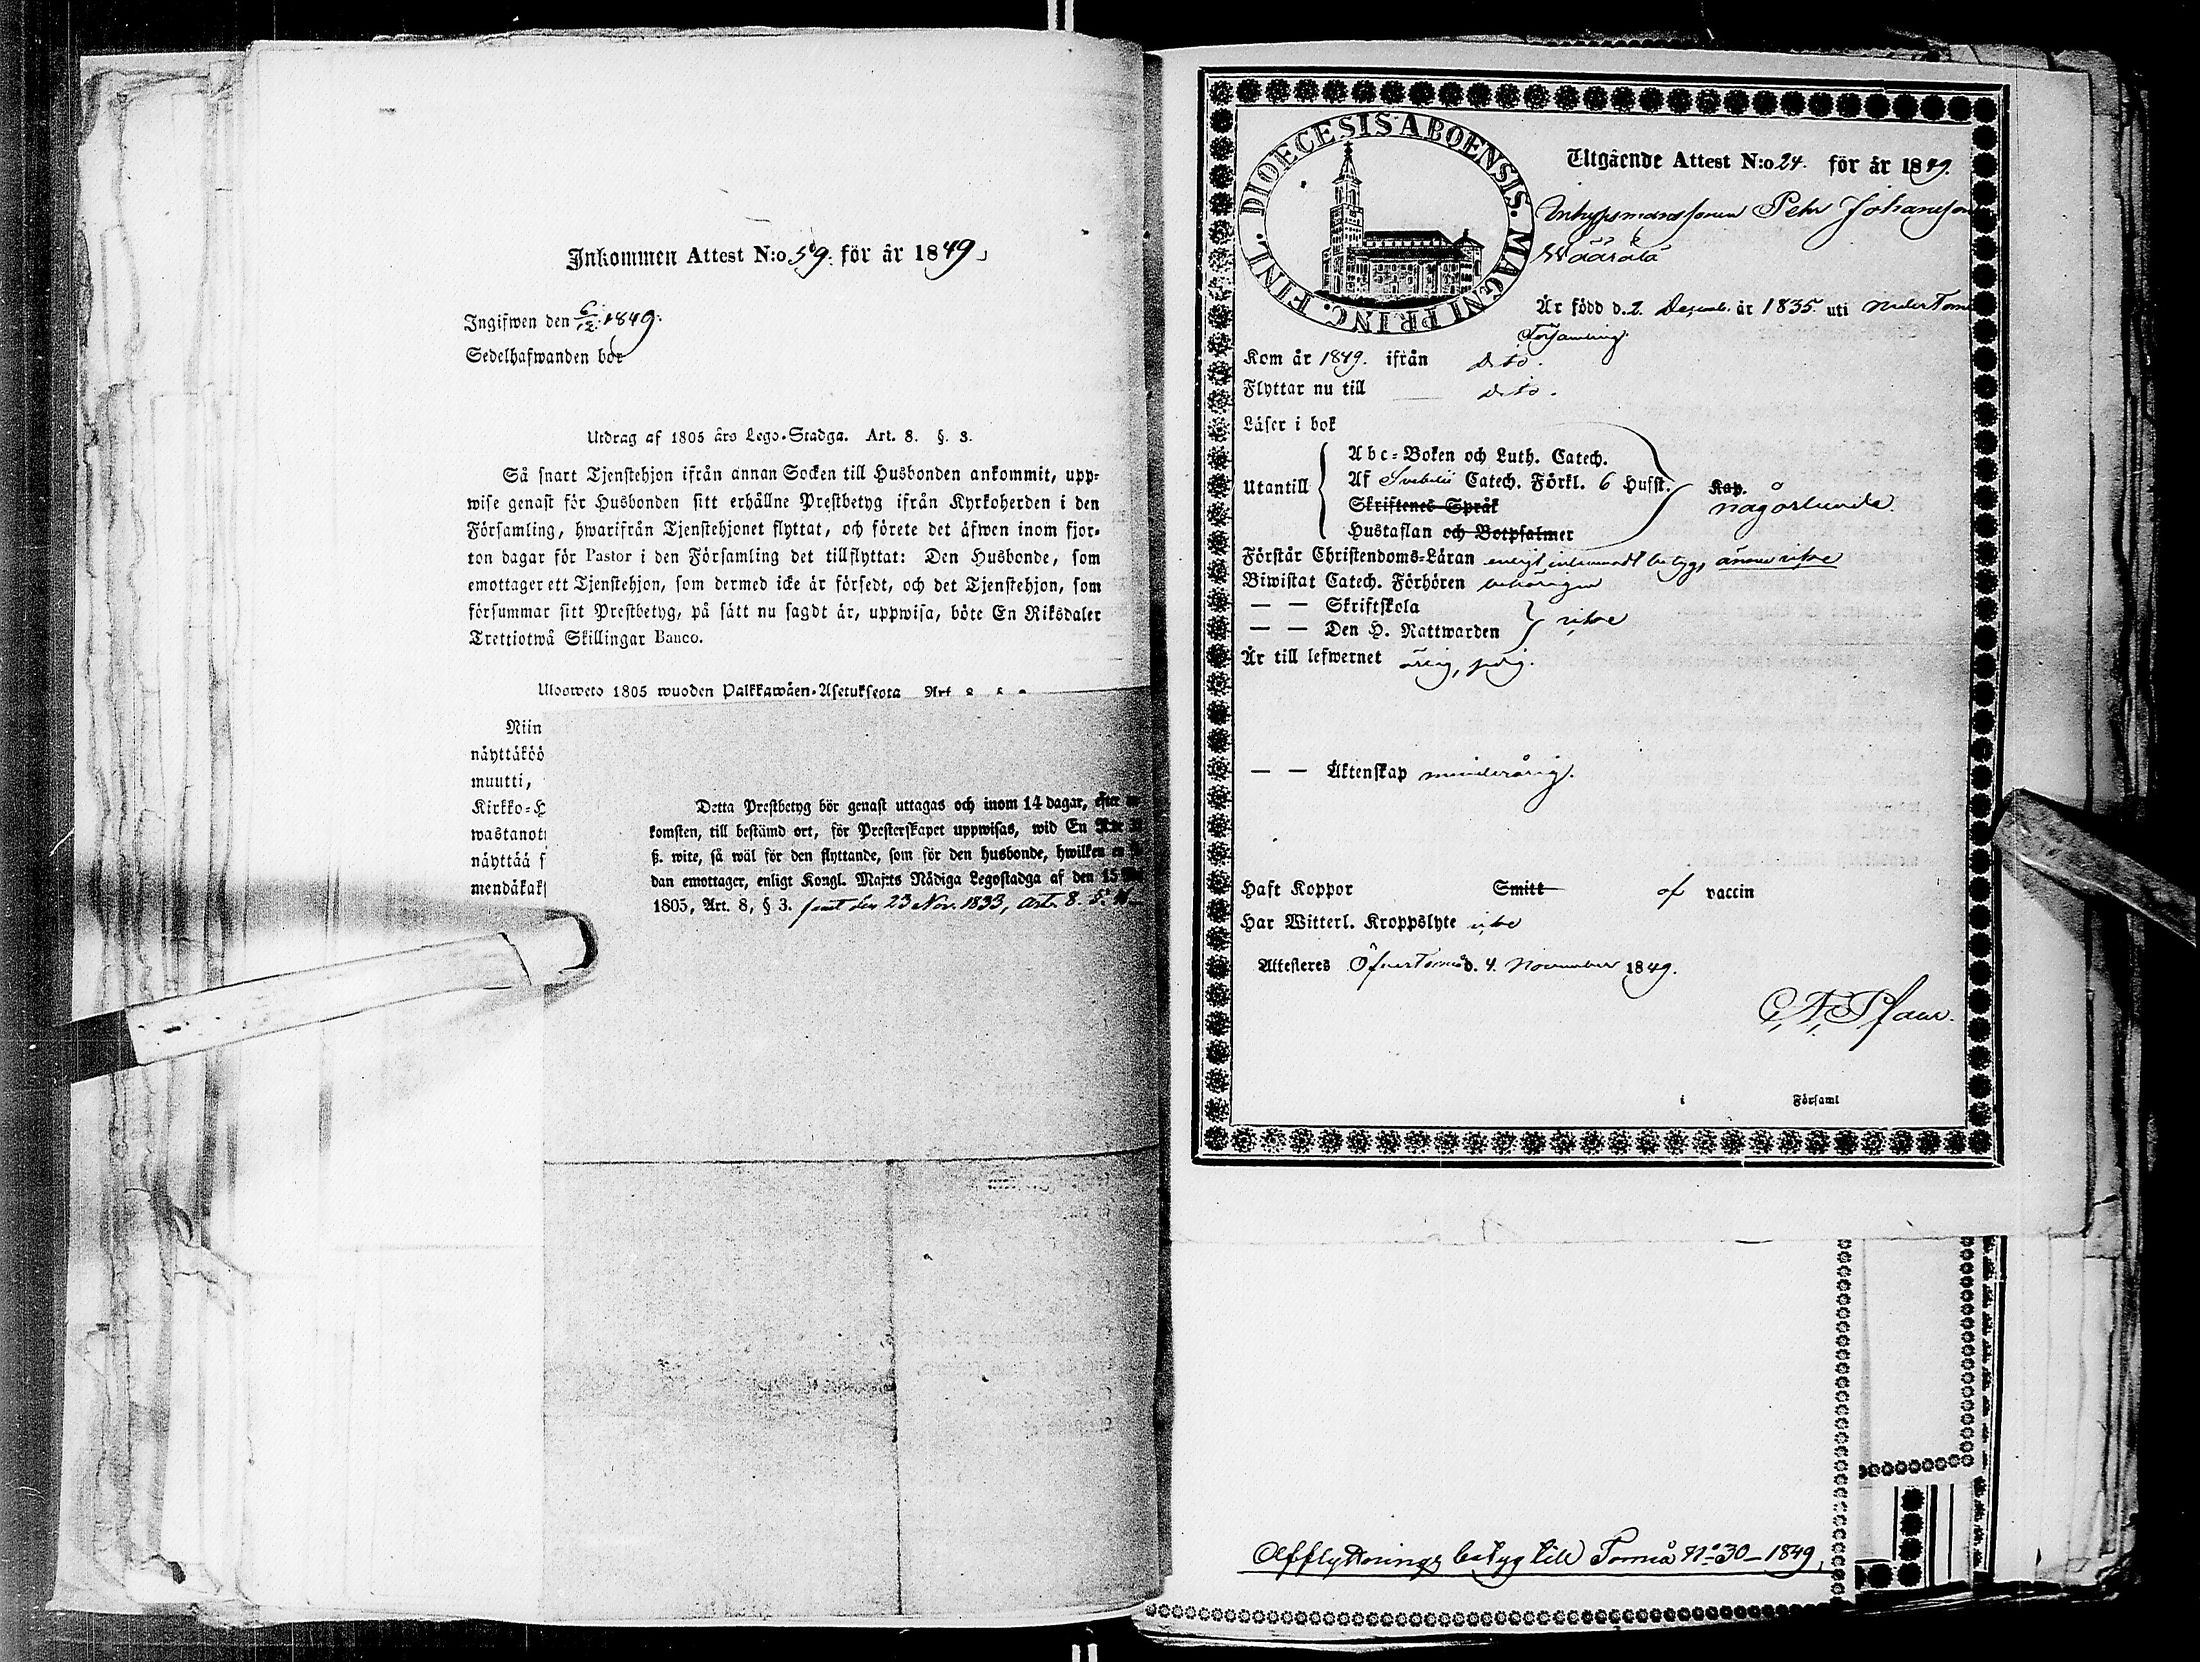 Inkommen Attest N:o 59. för år 1849,
Ingifwen den 6/12. 1849.
Sedelhafwanden bör
Utdrag af 1805 års Lego-Stadga. Art. 8. §. 3.
Så snart Tjenstehjon ifrån annan Socken till Husbonden ankommit, upp-
wise genast för Husbonden sitt erhållne Prestbetyg ifrån Kyrkoherden i den
Församling, hwarifrån Tjenstehjonet flyttat, och förete det äfwen inom fjor-
ton dagar för Pastor i den Församling det tillflyttat: Den Husbonde, som
emottager ett Tjenstehjon, som dermed icke är försedt, och det Tjenstehjon, som
försummar sitt Prestbetyg, på sätt nu sagdt är, uppwisa, böte En Riksdaler
Trettiotwå Skillingar Banco.
Ulosweto 1805 wuoden Palkkawäen-Asetuksesta Art. 8.
Niin
näyttäköö
muutti,
Kirkko-H
wastanot
näyttää
mendäkak
Detta Prestbetyg bör genast uttagas och inom 14 dagar, efter
komsten, till bestämd ort, för Presterskapet uppwisas, wid En
ß. wite, så wäl för den flyttande, som för den husbonde, hwilken
dan emottager, enligt Kongl. Maj:ts Nådiga Legostadga af den 15
1805, Art. 8, § 3. samt den 23 Nov. 1833, Art. 8.
DIOECESIS ABOENSIS. MAGNI PRINC. FINL.
Utgående Attest N:o 24. för år 1849.
Inhysmanssonen Petr Johansson
Wäärälä
Är född d. 2. Decemb. år 1835. uti Neder Torneå
Församling
Kom år 1849. ifrån d:to.
Flyttar nu till d:to.
Läser i bok
Abc-Boken och Luth. Catech.
Utantill Af Svebelii Catech. Förkl. 6 Hufst. Kap. någorlunda.
Skriftenes Språk
Hustaflan och Botpsalmer
Förstår Christendoms-Läran enligt inlemnadt betyg, ännu icke
Biwistat Catech. Förhören behörigen
— — Skriftskola
— — Den H. Nattwarden icke
Är till lefwernet ärlig,
— — Äktenskap minderårig.
Haft Koppor Smitt af vaccin
Har Witterl. Kroppslyte icke
Attesteres ÖfverTorneå d. 4. November 1849.
C. A. Pfaler.
i Församl
Afflyttnings betyg till Torneå No 30 – 1849,